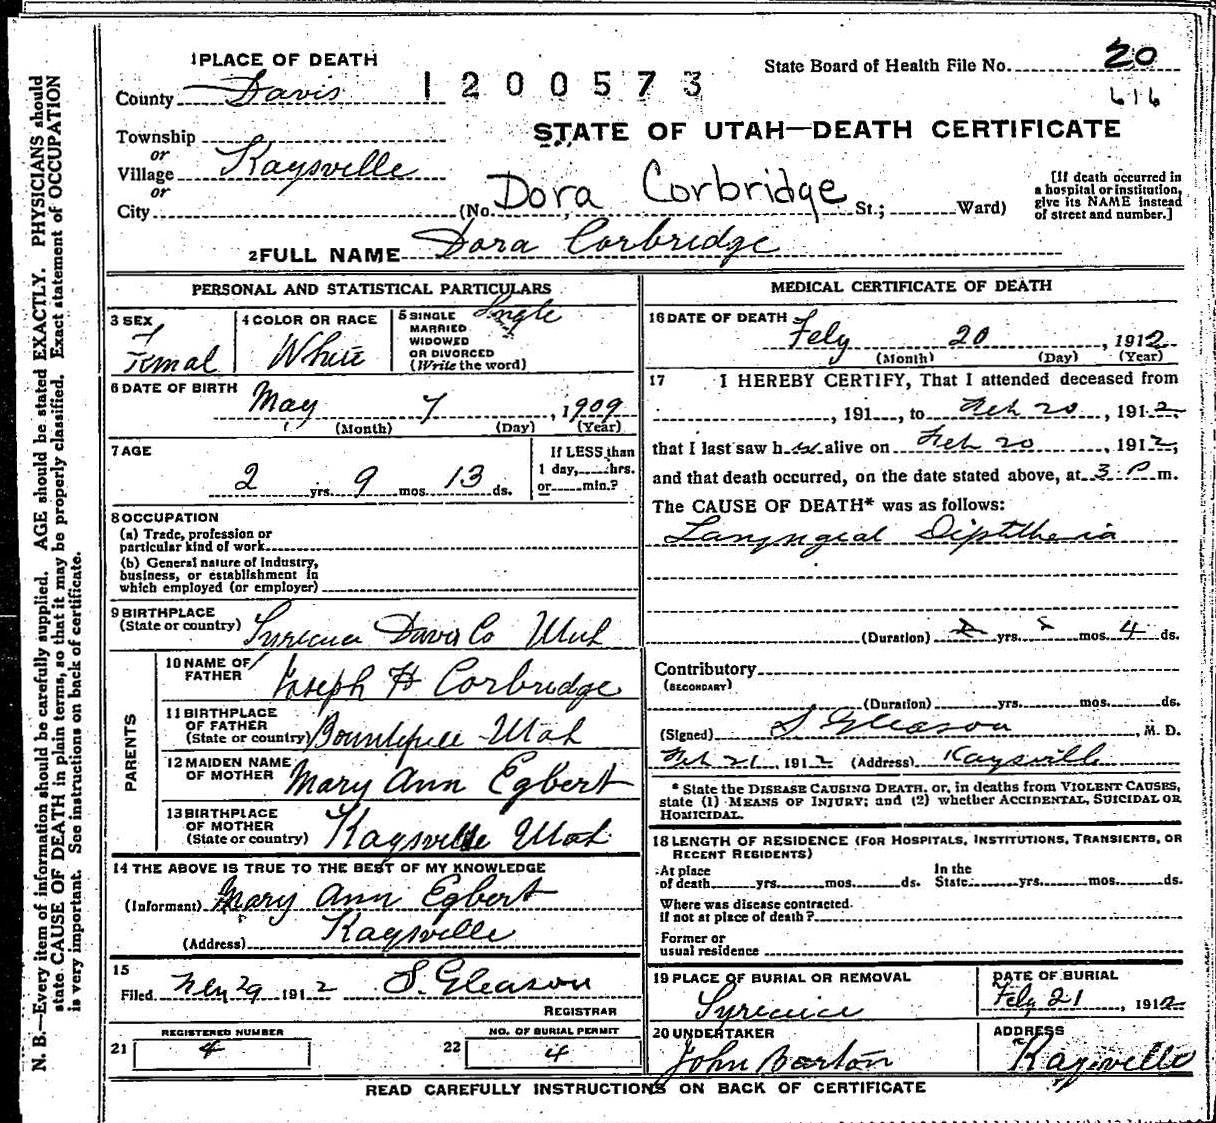 1 PLACE OF DEATH
1200573
State Board of Health File No. 20
616
County Davis
STATE OF UTAH—DEATH CERTIFICATE
Township
or
Village Kaysville
or
City
(No. Dora Corbridge St.; Ward)
[If death occurred in
a hospital or institution,
give its NAME instead
of street and number.]
2 FULL NAME Dora Corbridge
PERSONAL AND STATISTICAL PARTICULARS
3 SEX
Femal
4 COLOR OR RACE
White
5 SINGLE
MARRIED
WIDOWED
OR DIVORCED
(Write the word)
Single
6 DATE OF BIRTH
May 7, 1909
(Month) (Day) (Year)
7 AGE
2 yrs. 9 mos. 13 ds.
If LESS than
1 day, hrs.
or min.?
8 OCCUPATION
(a) Trade, profession or
particular kind of work
(b) General nature of Industry,
business, or establishment in
which employed (or employer)
9 BIRTHPLACE
(State or country) Syracuse Davis Co Utah
PARENTS
10 NAME OF
FATHER
Joseph H Corbridge
11 BIRTHPLACE
OF FATHER
(State or country) Bountifull Utah
12 MAIDEN NAME
OF MOTHER
Mary Ann Egbert
13 BIRTHPLACE
OF MOTHER
(State or country) Kaysville Utah
14 THE ABOVE IS TRUE TO THE BEST OF MY KNOWLEDGE
(Informant) Mary Ann Egbert
(Address) Kaysville
15
Filed Feb 29 1912 S. Gleason
REGISTRAR
REGISTERED NUMBER
21 4
NO. OF BURIAL PERMIT
22 4
MEDICAL CERTIFICATE OF DEATH
16 DATE OF DEATH
Feby 20, 1912
(Month) (Day) (Year)
17 I HEREBY CERTIFY, That I attended deceased from
, 191 , to Feb 20, 1912
that I last saw her alive on Feb 20, 1912,
and that death occurred, on the date stated above, at 3 P m.
The CAUSE OF DEATH* was as follows:
Laryngial Diptitheria
(Duration) yrs. mos. 4 ds.
Contributory
(SECONDARY)
(Duration) yrs. mos. ds.
(Signed) S Gleason, M. D.
Feb 21, 1912 (Address) Kaysville
* State the DISEASE CAUSING DEATH, or, in deaths from VIOLENT CAUSES,
state (1) MEANS OF INJURY; and (2) whether ACCIDENTAL, SUICIDAL OR
HOMICIDAL.
18 LENGTH OF RESIDENCE (FOR HOSPITALS, INSTITUTIONS, TRANSIENTS, OR
RECENT RESIDENTS)
At place
of death yrs. mos. ds.
In the
State yrs. mos. ds.
Where was disease contracted
if not at place of death?
Former or
usual residence
19 PLACE OF BURIAL OR REMOVAL
DATE OF BURIAL
Feby 21, 1912
20 UNDERTAKER
John Barton
ADDRESS
Kaysville
READ CAREFULLY INSTRUCTIONS ON BACK OF CERTIFICATE
N. B.—Every item of information should be carefully supplied. AGE should be stated EXACTLY. PHYSICIANS should
state CAUSE OF DEATH in plain terms, so that it may be properly classified. Exact statement of OCCUPATION
is very important. See instructions on back of certificate.